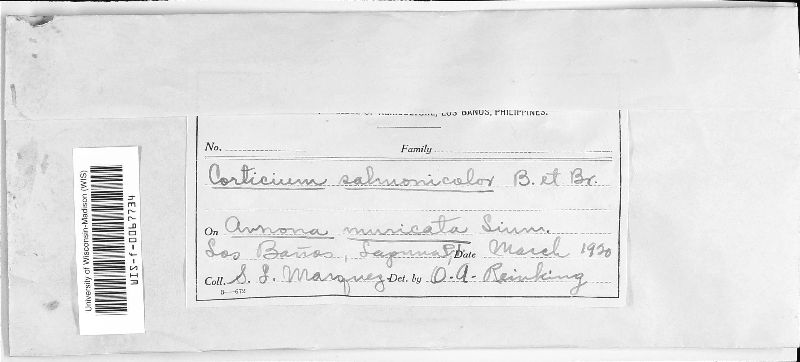 OF AGRICULTURE, LOS BANOS, PHILIPPINES.
No. Family
Corticium salmonicolor B. et Br.
On Annona muricata Linn.
Los Baños, Laguna, Date March 1920
Coll. S. S. Marquez Det. by O. A. Reinking
5—672
University of Wisconsin-Madison (WIS)
WIS-f-0067734